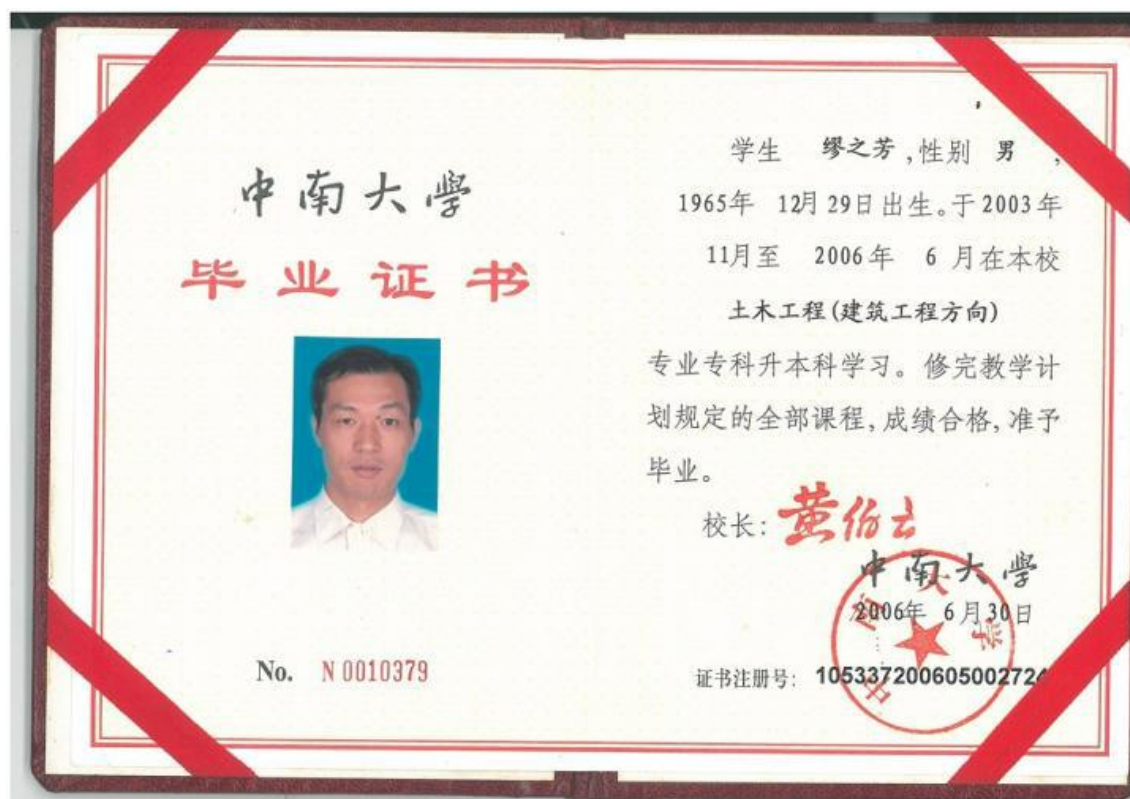 中南大學
毕业证书
No. N 0010379
学生 缪之芳,性别 男 ,
1965年 12月 29日出生。于2003年
11月至 2006年 6月在本校
土木工程(建筑工程方向)
专业专科升本科学习。修完教学计
划规定的全部课程,成绩合格,准予
毕业。
校长: 黄伯云
中南大學
2006年 6月30日
中南大学
证书注册号: 105337200605002724